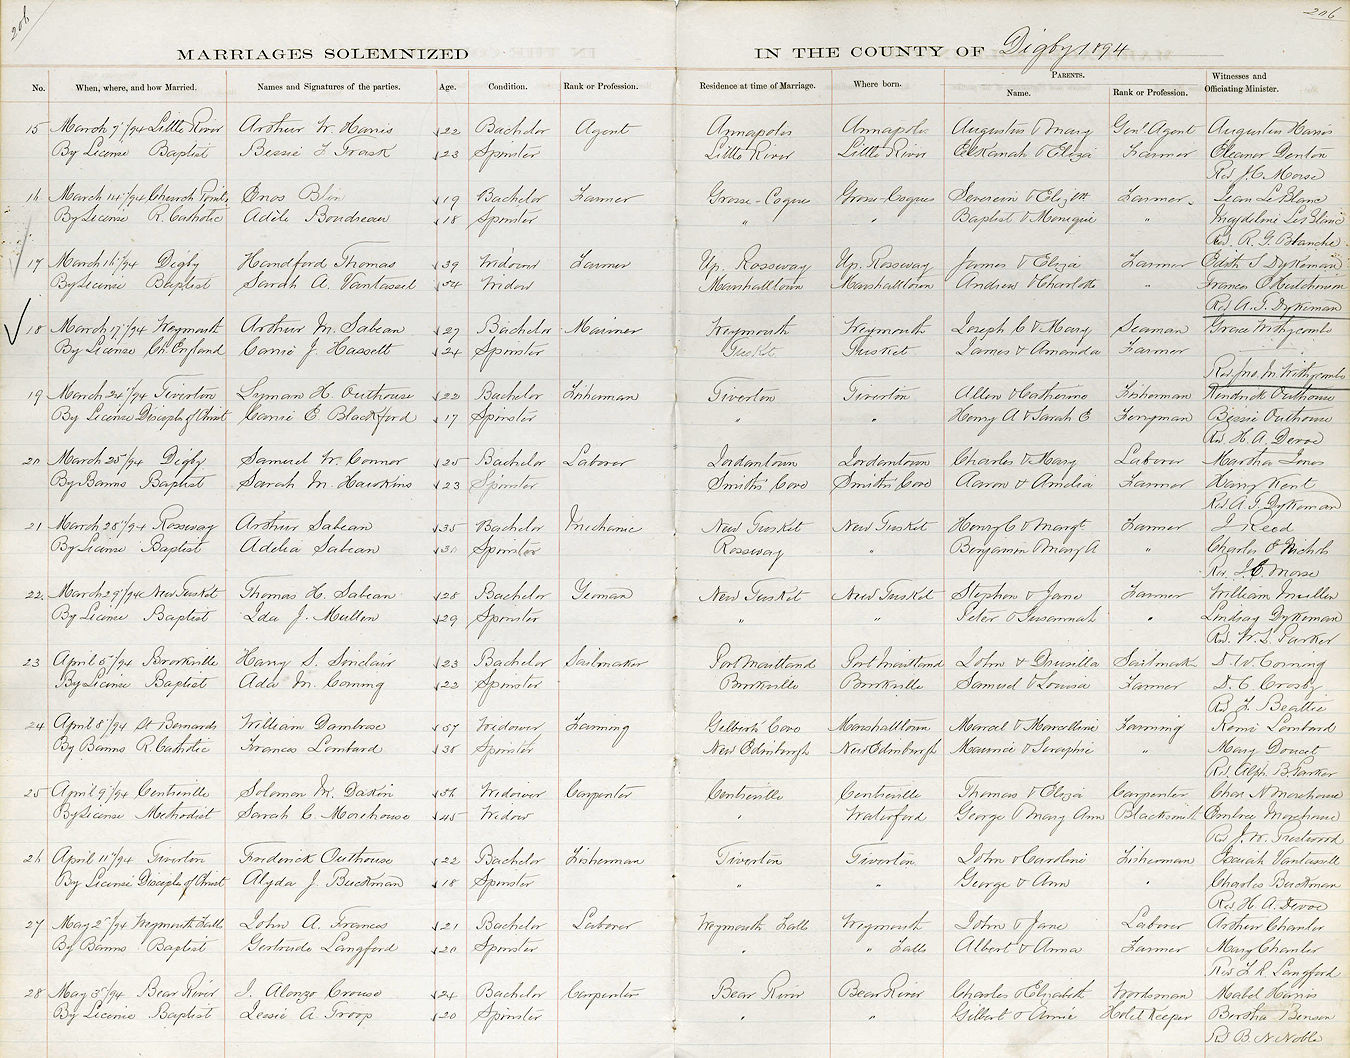 206 206
MARRIAGES SOLEMNIZED IN THE COUNTY OF Digby 1894
No. When, where, and how Married. Names and Signatures of the parties. Age. Condition. Rank or Profession. Residence at time of Marriage. Where born. PARENTS. Name. Rank or Profession. Witnesses and Officiating Minister.
15 March 7"/94 Little River Arthur W. Harris 22 Bachelor Agent Annapolis Annapolis Augustus & Mary Gen' Agent Augustus Harris
By License Baptist Bessie L Trask 23 Spinster Little River Little River Elkanah & Eliza Farmer Eleanor Denton
Rev J. C. Morse
16 March 14"/94 Church Point Enos Blin 19 Bachelor Farmer Grosse-Coques Grosse-Coques Severin & Elizth Farmer Jean LeBlanc
By License R. Catholic Adèle Boudreau 18 Spinster " " Baptist & Monique " Magdeline LeBlanc
Rev. R. G. Blanche
17 March 16"/94 Digby Handford Thomas 39 Widower Farmer Up. Rossway Up. Rossway James & Eliza Farmer Edith S Dykeman
By License Baptist Sarah A. Vantassel 54 Widow Marshalltown Marshalltown Andrew & Charlotte " Frances E Hutchinson
Rev A. T. Dykeman
18 March 17"/94 Weymouth Arthur M. Sabean 27 Bachelor Mariner Weymouth Weymouth Joseph C & Mary Seaman Grace Withycombe
By License Ch. England Carrie J. Hassett 24 Spinster Tusket Tusket James & Amanda Farmer
Rev. Jno. M. Withycombe
19 March 24"/94 Tiverton Lyman H. Outhouse 22 Bachelor Fisherman Tiverton Tiverton Allen & Catherine Fisherman Kendrick Outhouse
By License Disciples of Christ Carrie E Blackford 17 Spinster " " Henry A & Sarah E Ferryman Bessie Outhouse
Rev. H. A. Devoe
20 March 25"/94 Digby Samuel W. Connor 25 Bachelor Laborer Jordantown Jordantown Charles & Mary Laborer Martha Jones
By Banns Baptist Sarah M. Hawkins 23 Spinster Smiths' Cove Smiths' Cove Aaron & Amelia Farmer Harry Kent
Rev. A. T. Dykeman
21 March 28"/94 Rossway Arthur Sabean 35 Bachelor Mechanic New Tusket New Tusket Henry C & Margt Farmer J Reed
By License Baptist Adelia Sabean 30 Spinster Rossway " Benjamin & Mary A " Charles E Nichols
Rev. J. C. Morse
22 March 29"/94 New Tusket Thomas H. Sabean 28 Bachelor Yeoman New Tusket New Tusket Stephen & Jane Farmer William Mullen
By License Baptist Ida J. Mullen 29 Spinster " " Peter & Susannah " Lindsay Dykeman
Rev. W. L. Parker
23 April 5"/94 Brookville Harry S. Sinclair 23 Bachelor Sailmaker Port Maitland Port Maitland John & Drusilla Sailmaker D. W. Corning
By License Baptist Ada M. Corning 22 Spinster Brookville Brookville Samuel & Louisa Farmer D. C. Crosby
Rev. F. Beattie
24 April 8"/94 St Bernards William Dambrose 57 Widower Farming Gilberts' Cove Marshalltown Marcel & Marcelline Farming Remi Lombard
By Banns R. Catholic Frances Lombard 36 Spinster New Edinburgh New Edinburgh Maurice & Seraphie " Mary Doucet
Rev. Alph. B. Parker
25 April 9"/94 Centreville Solomon M. Dakin 56 Widower Carpenter Centreville Centreville Thomas & Eliza Carpenter Chas. N Morehouse
By License Methodist Sarah C. Morehouse 45 Widow " Waterford George & Mary Ann Blacksmith Embree Morehouse
Rev J. W. Prestwood
26 April 11"/94 Tiverton Frederick Outhouse 22 Bachelor Fisherman Tiverton Tiverton John & Caroline Fisherman Isaiah Vantassell
By License Disciples of Christ Alyda J. Buckman 18 Spinster " " George & Ann " Charles Buckman
Rev H. A. Devoe
27 May 2"/94 Weymouth Falls John A. Frances 21 Bachelor Laborer Weymouth Falls Weymouth John & Jane Laborer Arthur Chanler
By Banns Baptist Gertrude Langford 20 Spinster " " Falls Albert & Anna Farmer Mary Chanler
Rev F. R. Langford
28 May 3"/94 Bear River J. Alonzo Crouse 24 Bachelor Carpenter Bear River Bear River Charles & Elizabeth Woodsman Mabel Harris
By License Baptist Lessie A Troop 20 Spinster " " Gilbert & Annie Hotel Keeper Bertha Benson
Rev B. N. Noble